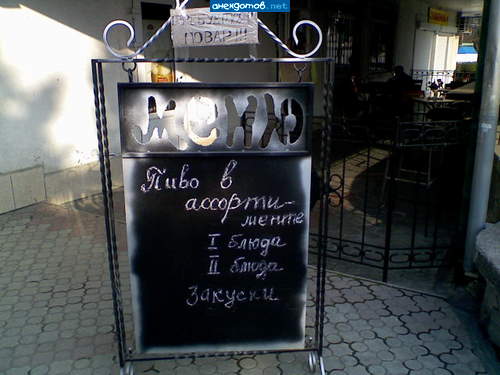 анекдотов.net
ПОВАР!!!
меню
Пиво в
ассорти-
менте
I блюда
II блюда
Закуски